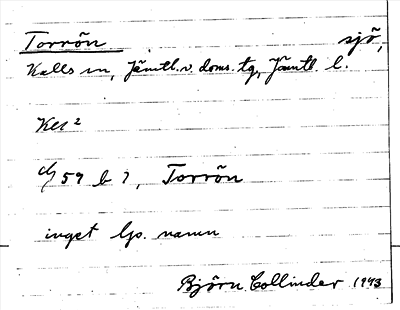 Torrön sjö,
Kalls sn, Jämtl. v. doms. tg, Jämtl. l.
Kls 2
59 b 7, Torrön
inget lp. namn
Björn Collinder 1943